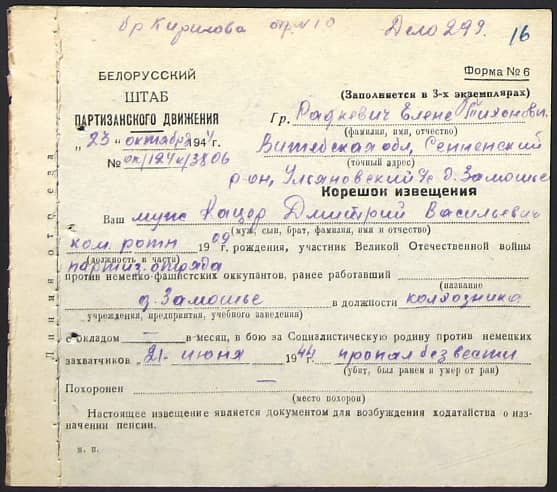 бр Кирилова отр. №10 Дело 299. 16
БЕЛОРУССКИЙ
ШТАБ
ПАРТИЗАНСКОГО ДВИЖЕНИЯ
„23" октября 1944 г.
№ оп/124к/3806
Форма № 6
(Заполняется в 3-х экземплярах)
Гр. Радкевич Елене Тихоновы
(фамилия, имя, отчество)
Витебская обл, Сенненский
(точный адрес)
р-он, Ульяновский с/с д. Замошье
Корешок извещения
Ваш муж Кацор Дмитрий Васильевич
(муж, сын, брат, фамилия, имя и отчество)
ком. роты 1909 г. рождения, участник Великой Отечественной войны
(должность в части)
партиз. отряда
против немецко-фашистских оккупантов, ранее работавший
(название
д. Замошье в должности колхозника
учреждения, предприятия, учебного заведения)
с окладом — в месяц, в бою за Социалистическую родину против немецких
захватчиков 21- июня 1944 г. пропал без вести
(убит, был ранен и умер от ран)
Похоронен —
(место похорон)
Настоящее извещение является документом для возбуждения ходатайства о наз-
начении пенсии.
м. п.
Линия отреза